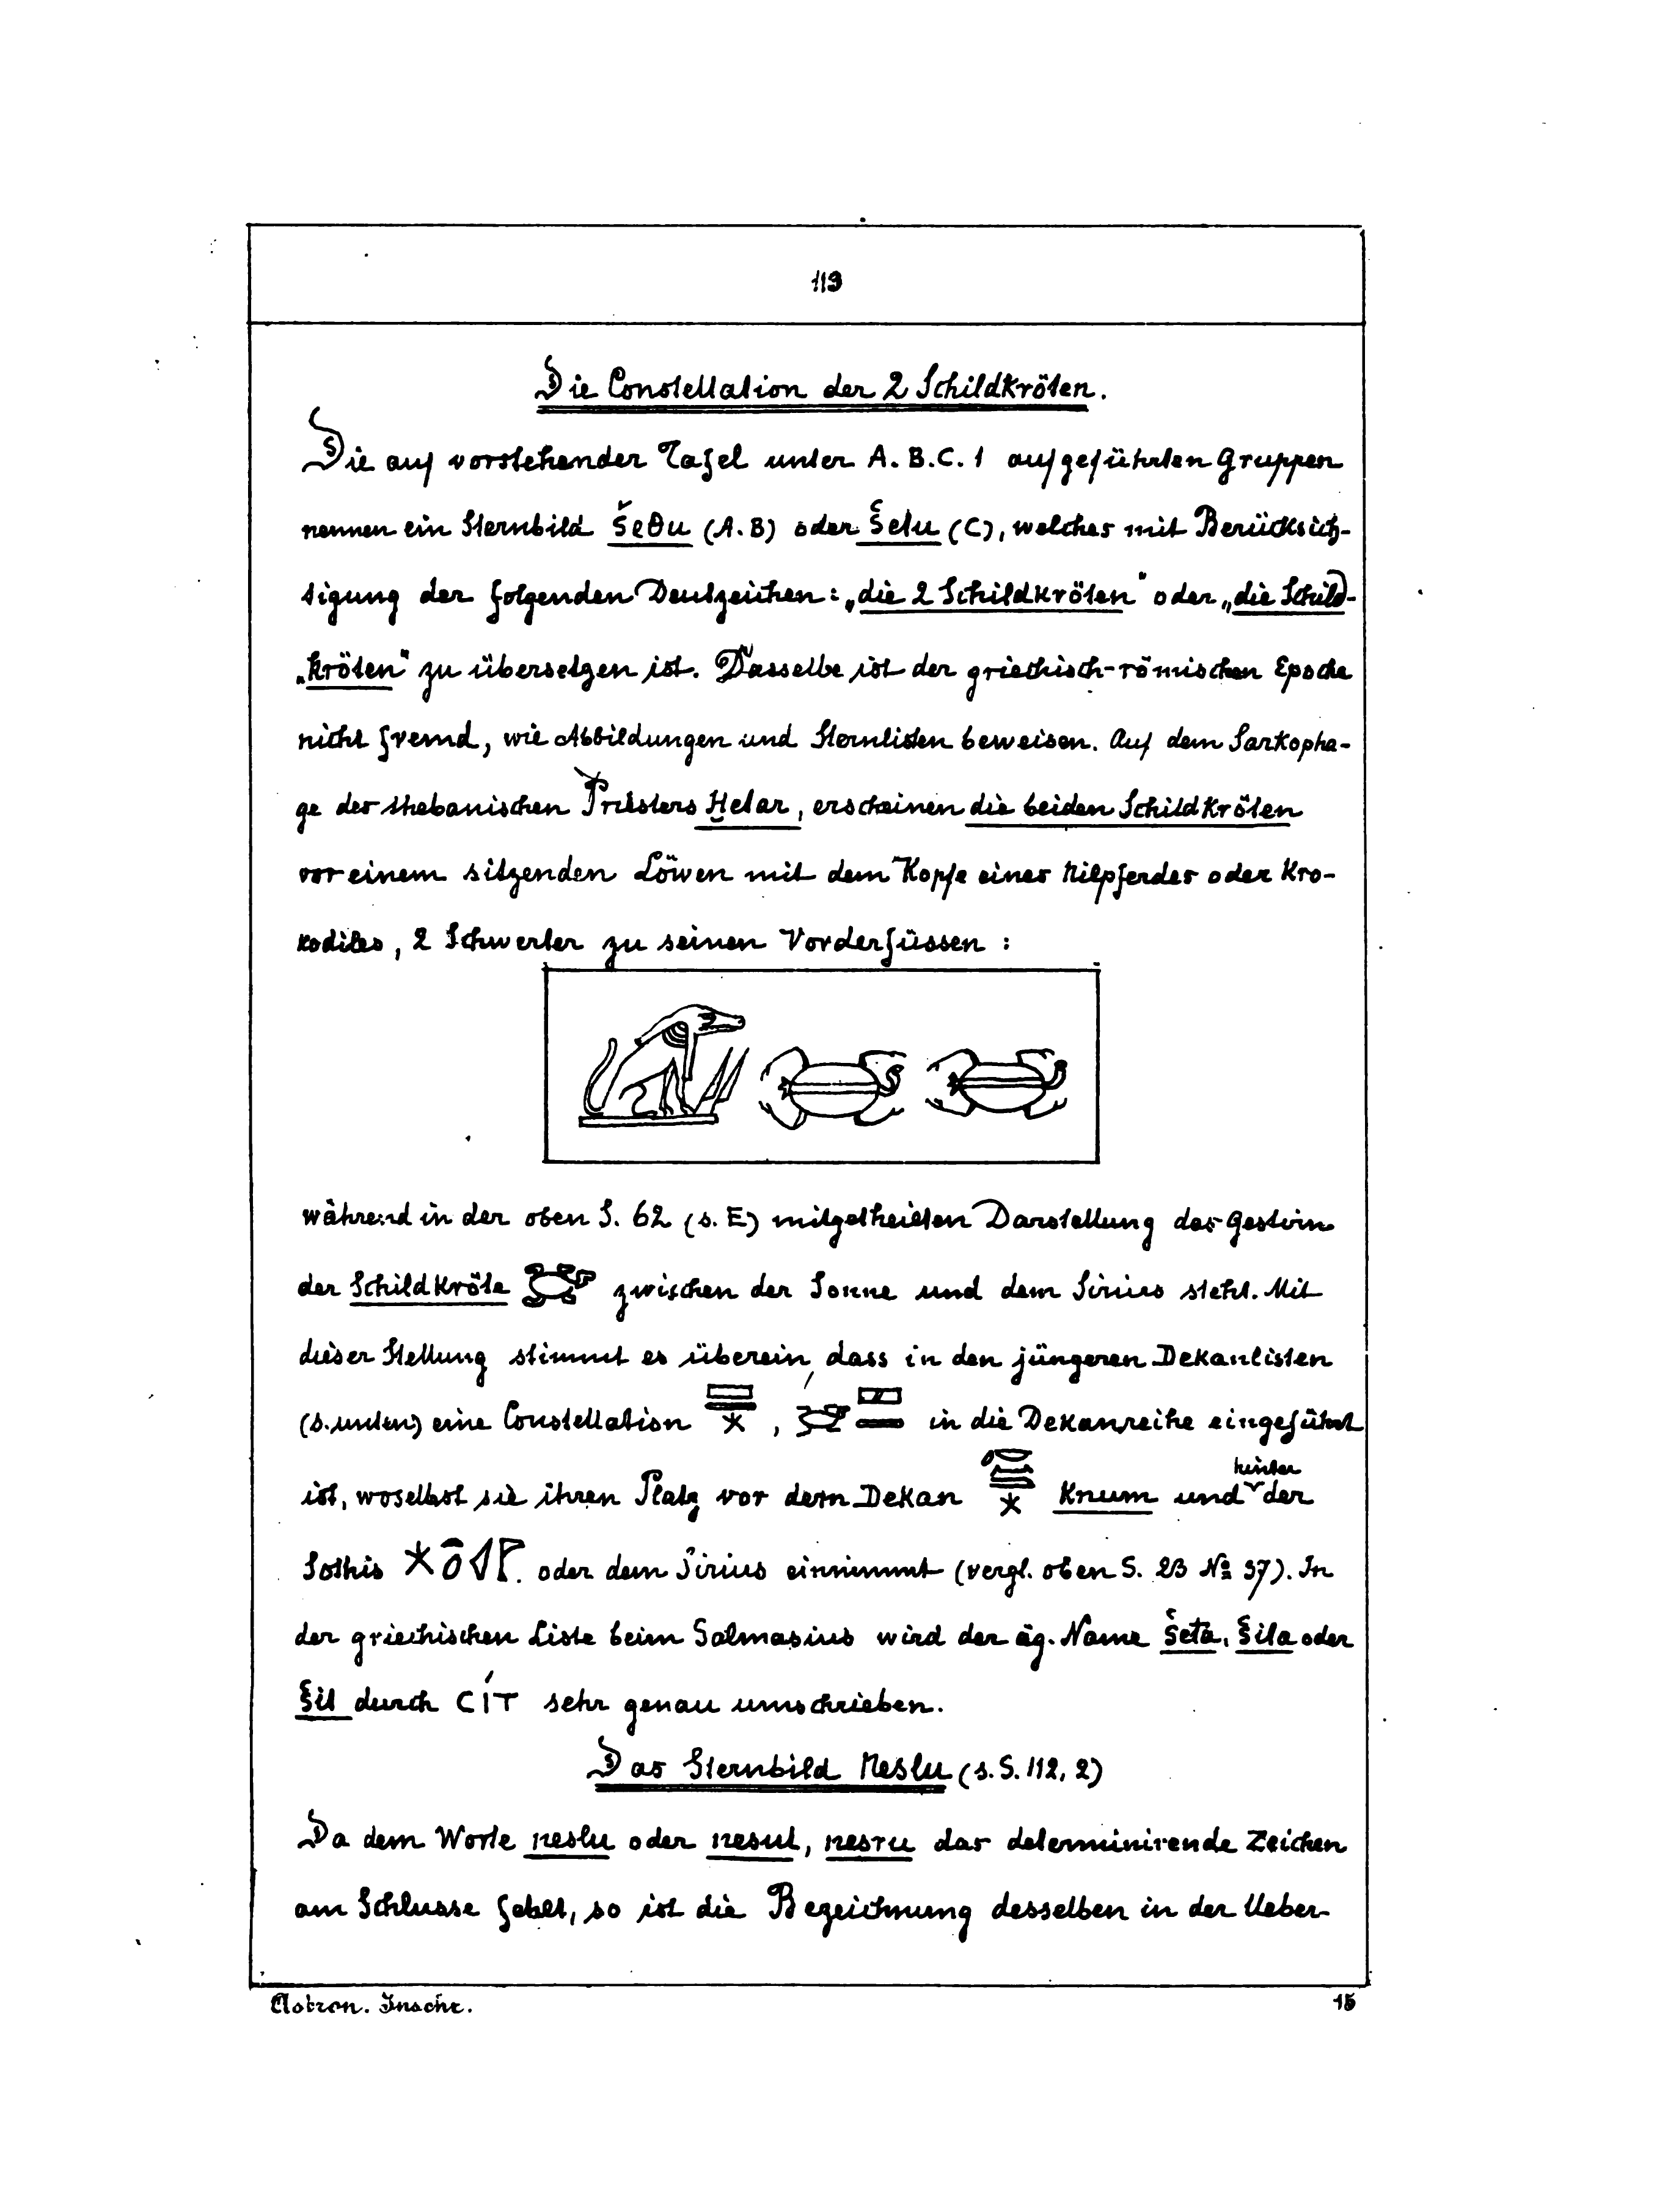 113
Die Constellation der 2 Schildkröten.
Die auf vorstehender Tafel unter A. B. C. 1 aufgeführten Gruppen
nennen ein Sternbild šeθu (A. B) oder šetu (C), welches mit Berücksich-
tigung der folgenden Deutzeichen: „die 2 Schildkröten" oder „die Schild-
„kröten" zu übersetzen ist. Dasselbe ist der griechisch-römischen Epoche
nicht fremd, wie Abbildungen und Sternlisten beweisen. Auf dem Sarkopha-
ge des thebanischen Priesters Ḥetar, erscheinen die beiden Schildkröten
vor einem sitzenden Löwen mit dem Kopfe eines Nilpferdes oder Kro-
kodiles, 2 Schwerter zu seinen Vorderfüssen:
während in der oben S. 62 (s. E) mitgetheilten Darstellung das Gestirn
der Schildkröte zwischen der Sonne und dem Sirius steht. Mit
dieser Stellung stimmt es überein, dass in den jüngeren Dekanlisten
(s. unten) eine Constellation , in die Dekanreihe eingeführt
ist, woselbst sie ihren Platz vor dem Dekan Knum und hinter der
Sothis oder dem Sirius einnimmt (vergl. oben S. 23 № 37). In
der griechischen Liste beim Salmasius wird der äg. Name šeta, šita oder
šit durch CÍT sehr genau umschrieben.
Das Sternbild Neslu (s. S. 112, 2)
Da dem Worte neslu oder nesul, nesru das determinirende Zeichen
am Schlusse fehlt, so ist die Bezeichnung desselben in der Ueber-
Astron. Inschr. 15